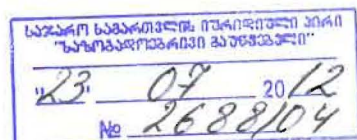 საჯარო სამართლის იურიდიული პირი
"საზოგადოებრივი მაუწყებელი"
"23" 07 2012
№ 2688/04